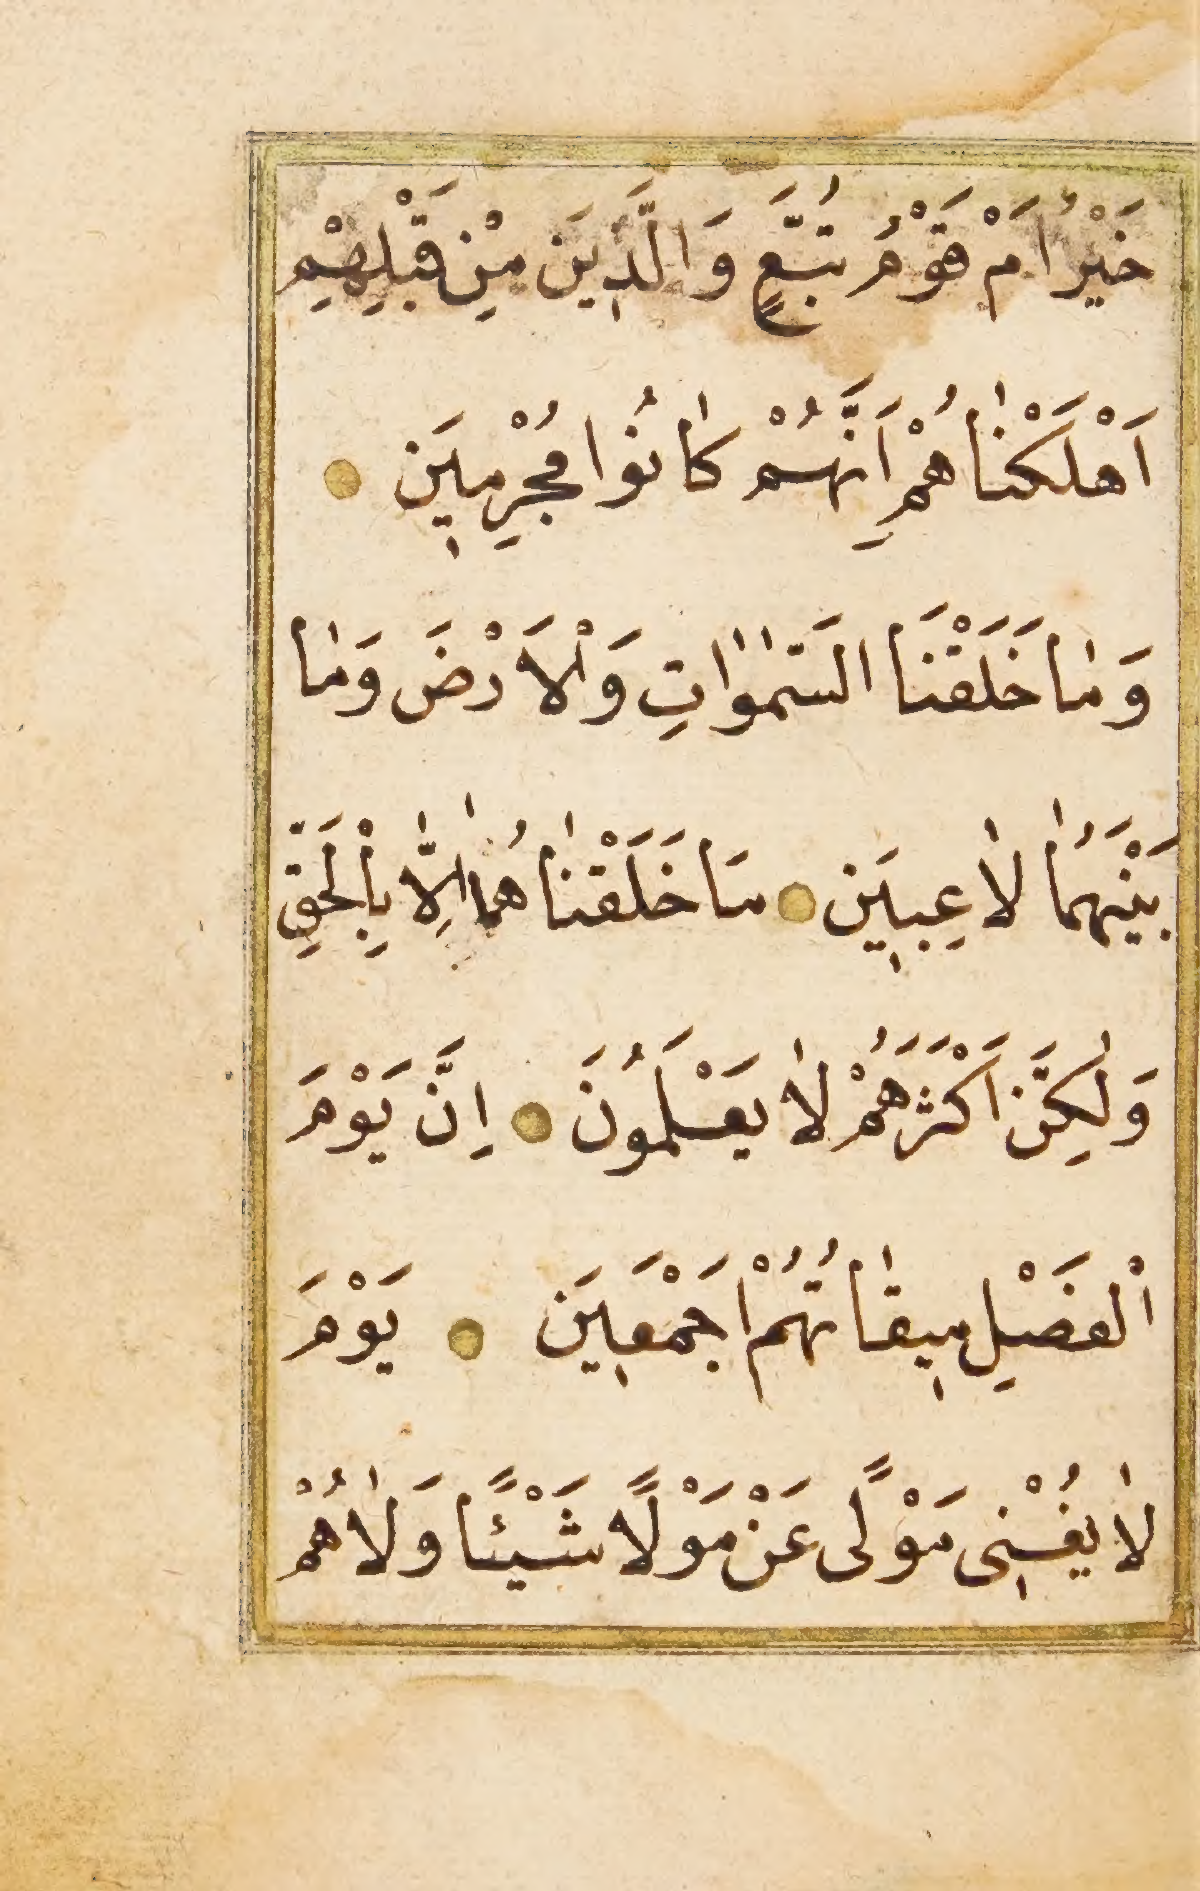 خَيْرٌ اَمْ قَوْمُ تُبَّعٍ وَالَّذٖينَ مِنْ قَبْلِهِمْ
اَهْلَكْنٰاهُمْ اِنَّهُمْ كٰانُوا مُجْرِمٖينَ
وَمٰا خَلَقْنَا السَّمٰوٰاتِ وَالْاَرْضَ وَمٰا
بَيْنَهُمٰا لٰاعِبٖينَ مَا خَلَقْنٰاهُمٰا اِلّٰا بِالْحَقِّ
وَلٰكِنَّ اَكْثَرَهُمْ لٰا يَعْلَمُونَ اِنَّ يَوْمَ
الْفَصْلِ مٖيقٰاتُهُمْ اَجْمَعٖينَ يَوْمَ
لٰا يُغْنٖى مَوْلًى عَنْ مَوْلًا شَيْئًا وَلٰا هُمْ